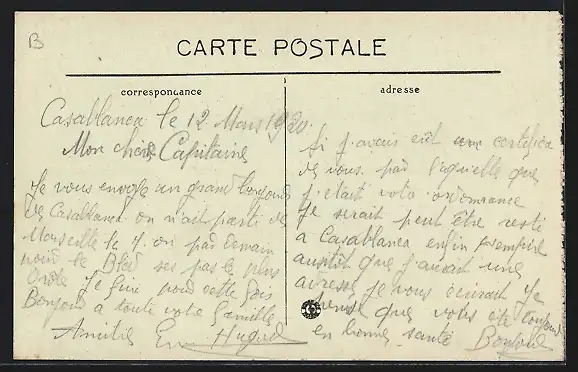 B
CARTE POSTALE
correspondance
Casablanca le 12 Mars 1920
Mon cher Capitaine
Je vous envoye un grand bonjour
de Casablanca on n'ait parti de
Marseille le 7. on par demain
pour le Bled ses pas le plus
drole je fini pour cette fois
Bonjour a toute votre famille
Amitié
adresse
Si j'avais eut une certifica
de vous par laquelle que
j'etait votre ordonnance
Je serait peut être resté
a Casablanca enfin
aussitot que j'aurait une
adresse je vous ecrirait Je
pense que vous ete toujours
en bonne santé Bonjour